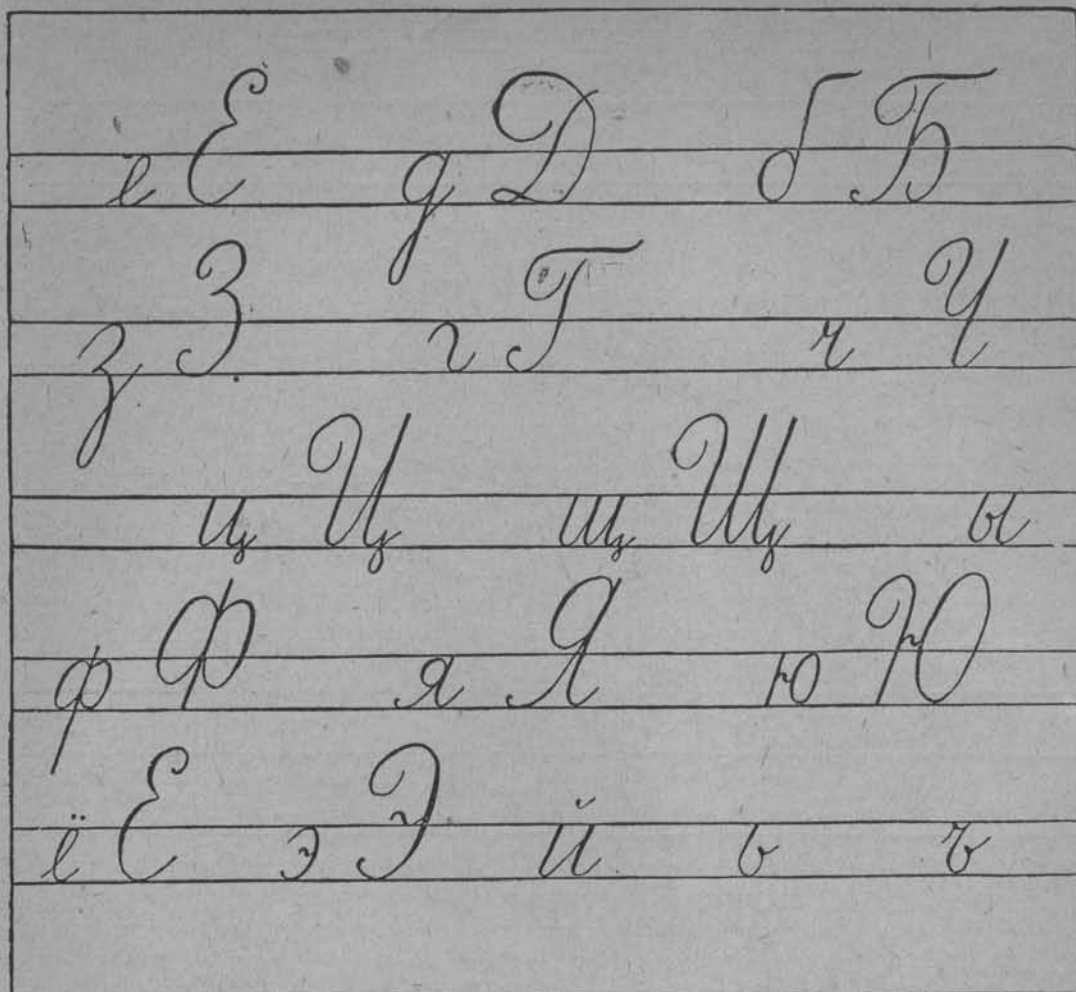 е Е д Д б Б
з З г Г ч Ч
ц Ц щ Щ ы
ф Ф я Я ю Ю
ё Е э Э й ь ъ